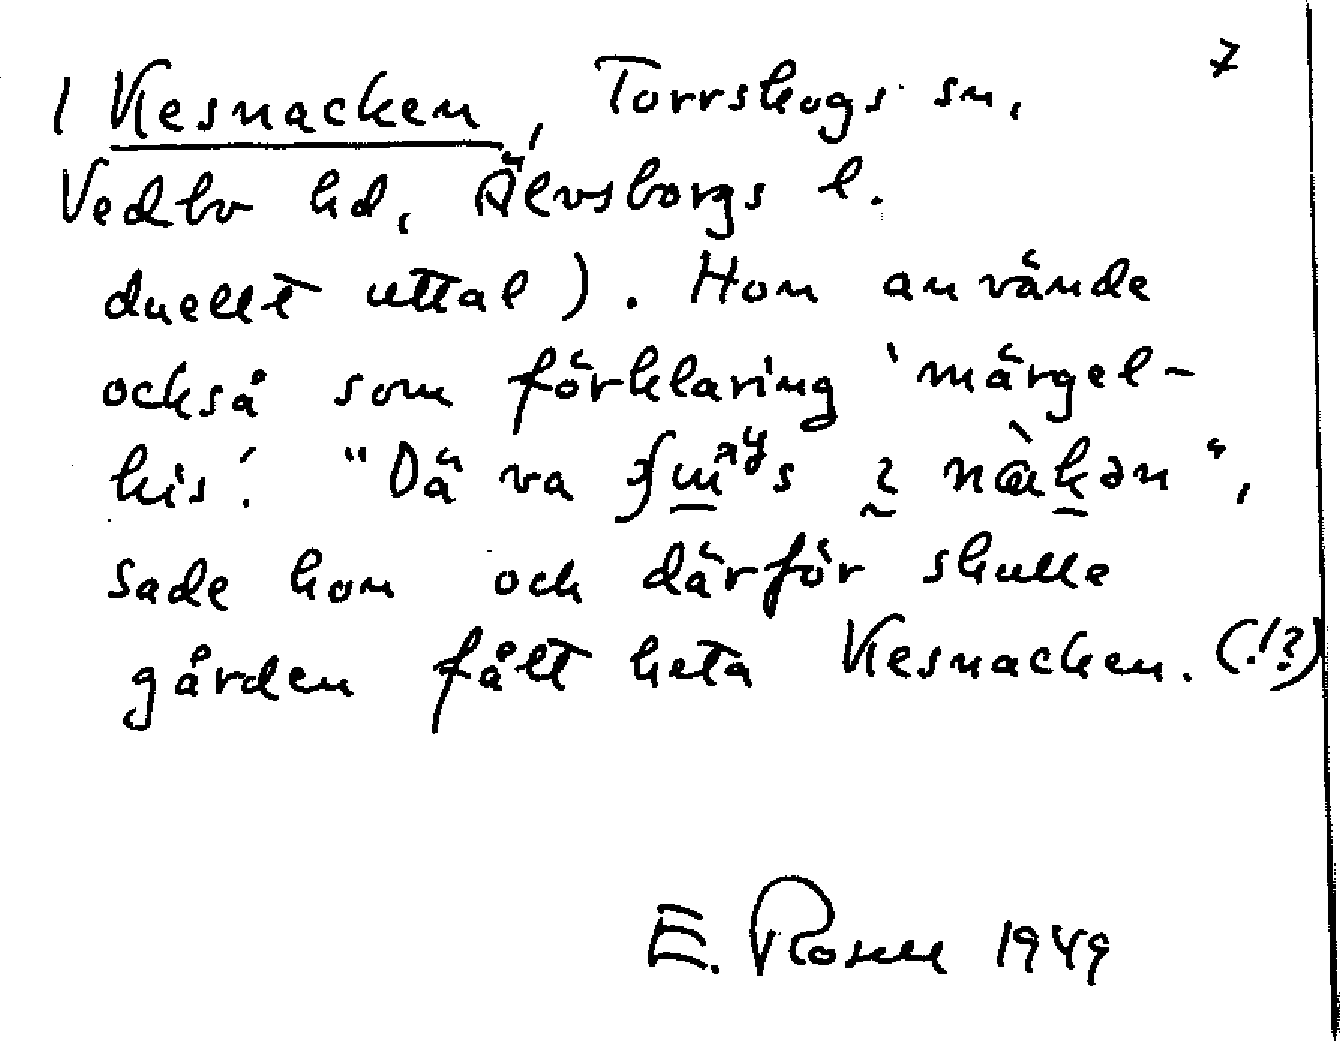 7
1 Kesnacken, Torrskogs sn,
Vedbo hd, Älvsborgs l.
duellt uttal). Hon använde
också som förklaring 'märgel-
kis'. "Dä va i nàkən",
sade hon och därför skulle
gården fått heta Kesnacken. (!?)
E. Rosell 1949